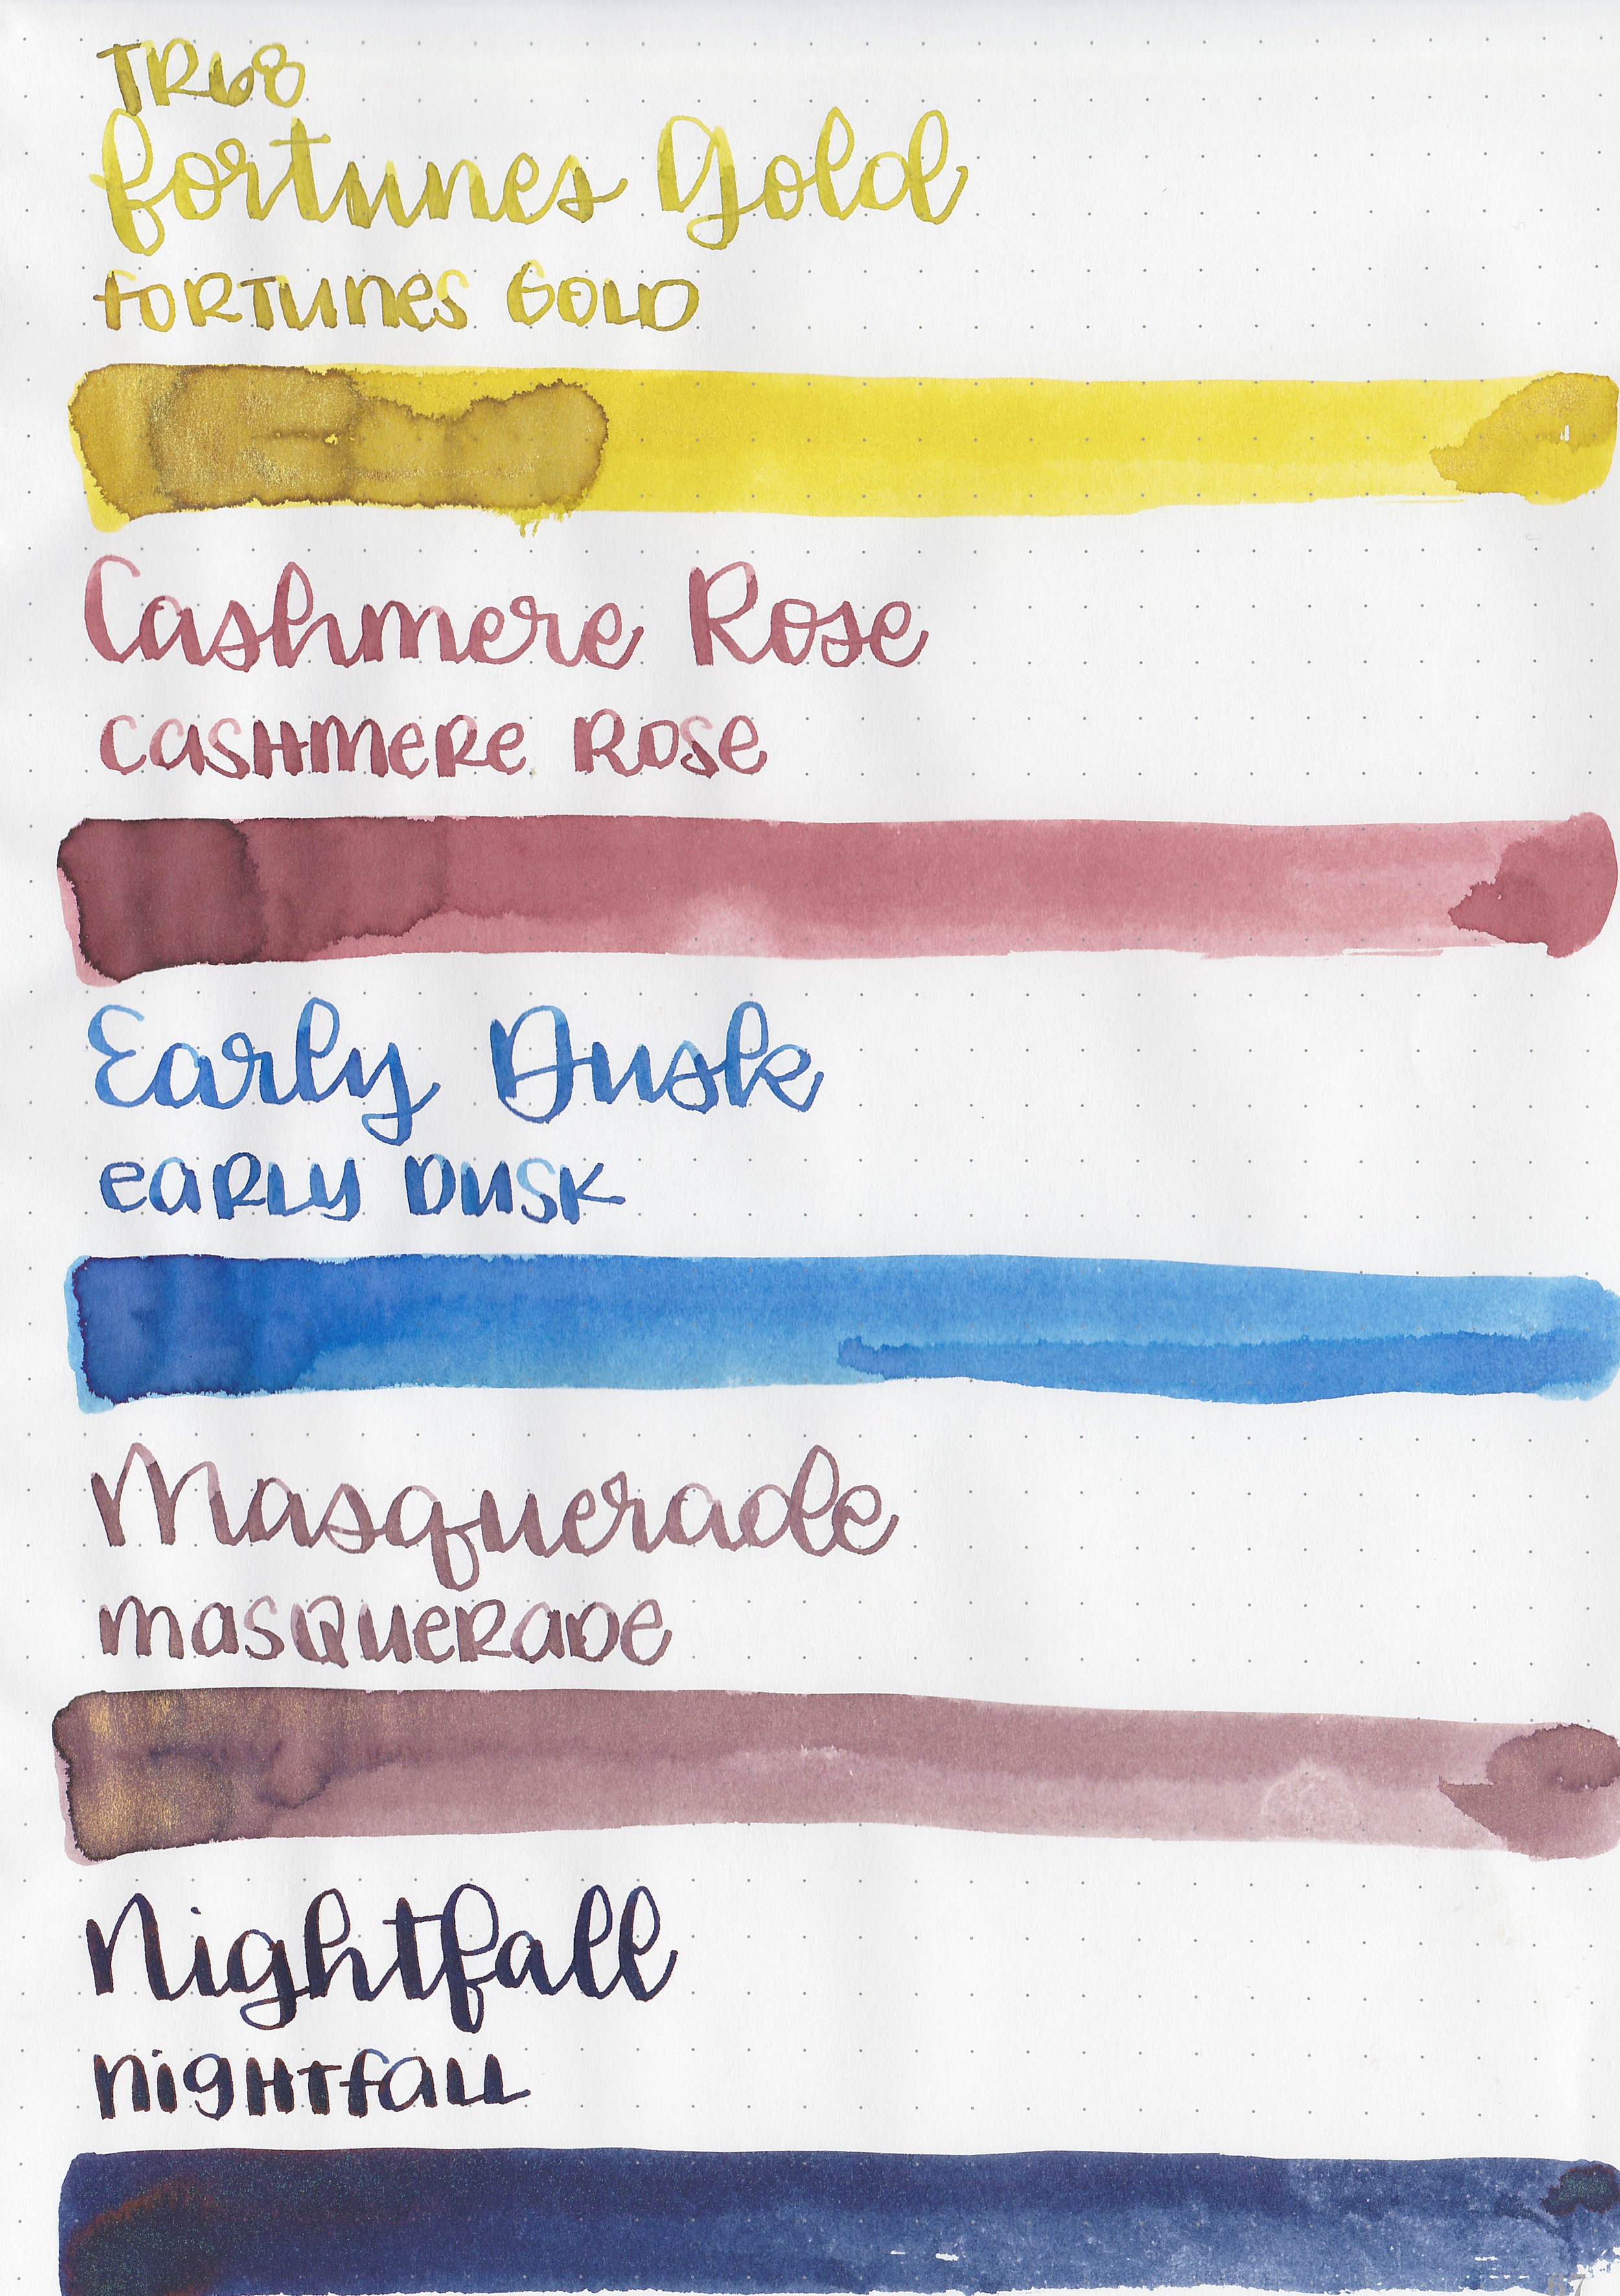 TR68
fortunes Gold
FORTUNES GOLD
Cashmere Rose
CASHMERE ROSE
Early Dusk
EARLY DUSK
Masquerade
MASQUERADE
Nightfall
NIGHTFALL